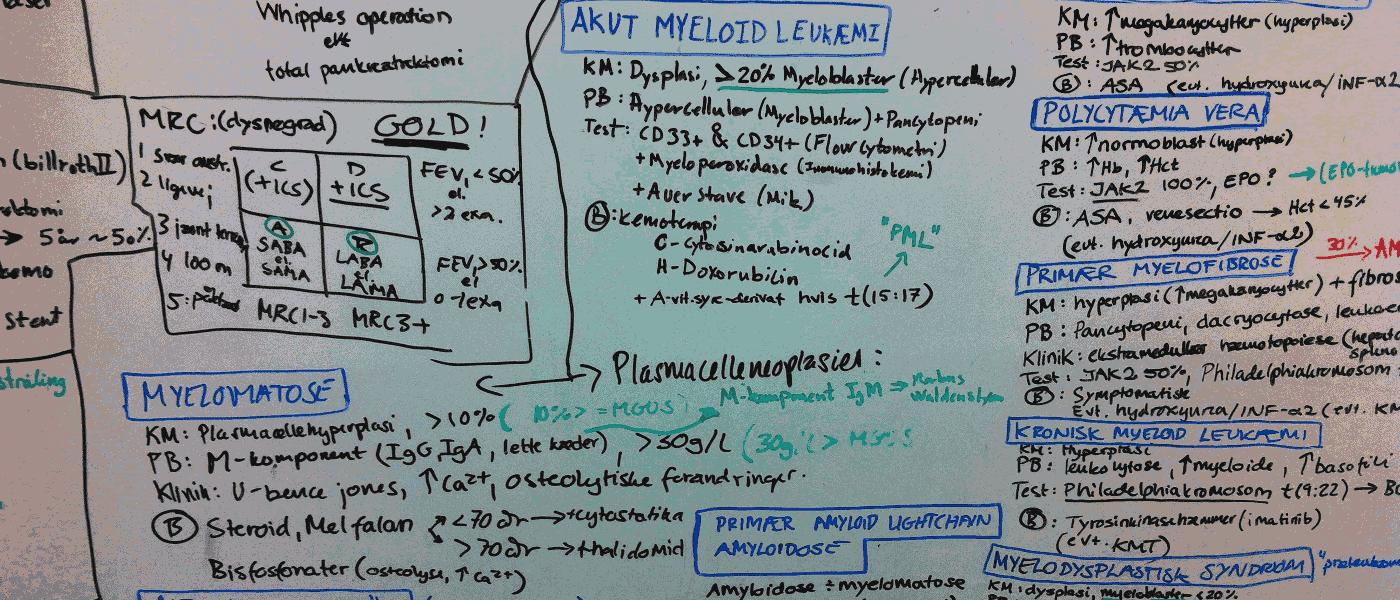 Whipples operation
total pankreatektomi
(billroth II)
→ 5år ~50%
stent
stråling
MRC: (dyspnegrad) GOLD!
1 stor anstr.
3 jævnt
4 100m
C D FEV1 < 50%
(+ICS) +ICS el.
>2 exa.
A B
SABA LABA FEV1 > 50%
el. el. el
SAMA LAMA 0-1 exa
MRC1-3 MRC3+
AKUT MYELOID LEUKÆMI
KM: Dysplasi, ≥20% Myeloblaster (Hypercellulær)
PB: Hypercellulær (Myeloblaster) + Pancytopeni
Test: CD33+ & CD34+ (Flowcytometri)
+Myeloperoxidase (Immunhistokemi)
+ Auer stave (Mik)
B: kemoterapi
C-Cytosinarabinocid
H-Doxorubilin
"PML"
+ A-vit.syre-derivat hvis t(15:17)
Plasmacelleneoplasier:
MYELOMATOSE
KM: Plasmacellehyperplasi, >10% (10%> = MGUS)
M-komponent IgM ⇒ Morbus Waldenstrøm
PB: M-komponent (IgG, IgA, lette kæder), >30g/L (30g/L > MGUS
Klinik: U-bence jones, ↑Ca2+, osteolytiske forandringer.
B Steroid, Melfalan <70 år → +cytostatika
>70 år → +thalidomid
Bisfosfonater (osteolyse, ↑Ca2+)
PRIMÆR AMYLOID LIGHTCHAIN
AMYLOIDOSE
Amyloidose ÷ myelomatose
KM: ↑megakaryocytter (hyperplasi)
PB: ↑trombocytter
Test: JAK2 50%
B: ASA (evt. hydroxyurea/INF-α2
POLYCYTÆMIA VERA
KM: ↑normoblast (hyperplasi)
PB: ↑Hb, ↑Hct
Test: JAK2 100%, EPO? → (EPO-tumor
B: ASA, venesectio → Hct < 45%
(evt. hydroxyurea/INF-α2) 30% → AM
PRIMÆR MYELOFIBROSE
KM: hyperplasi (↑megakaryocytter) + fibros
PB: Pancytopeni, dacryocytose, leukoer
Klinik: ekstramedullær hæmatopoiese (hepato
Test: JAK2 50%, Philadelphiakromosom
B: Symptomatisk
Evt. hydroxyurea/INF-α2 (evt. KM
KRONISK MYELOID LEUKÆMI
KM: Hyperplasi
PB: leukocytose, ↑myeloide, ↑basofili
Test: Philadelphiakromosom t(9:22) →
B: Tyrosinkinasehæmmer (imatinib)
(evt. KMT)
MYELODYSPLASTISK SYNDROM
KM: dysplasi, myeloblaster <20%